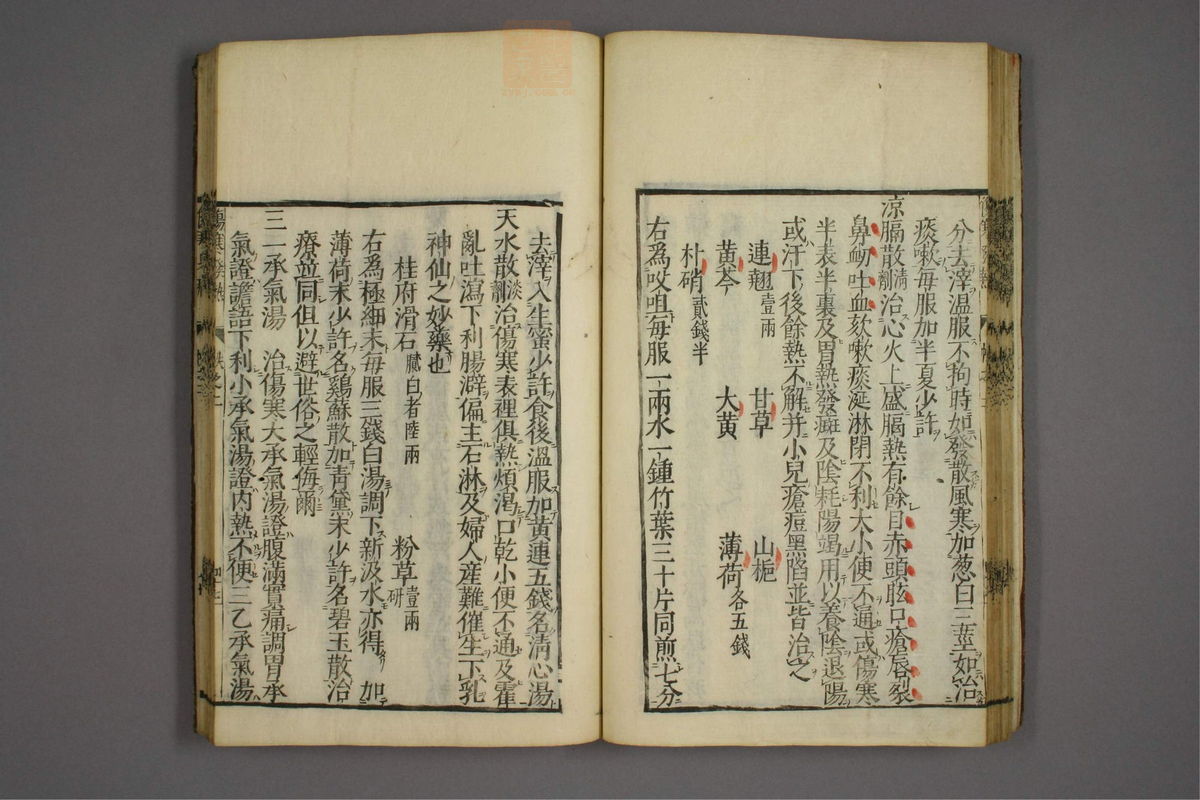 分去滓溫服不拘時如發散風寒加葱白三莖如治
痰嗽每服加半夏少許
涼膈散清劑治心火上盛膈熱有餘目赤頭眩口瘡唇裂
鼻衂吐血欬嗽痰涎淋閉不利大小便不通或傷寒
半表半裏及胃熱發斑及陰耗陽竭用以養陰退陽
或汗下後餘熱不解并小兒瘡痘黑陷並皆治之
連翹壹兩 甘草 山梔
黃芩 大黃 薄荷各五錢
朴硝貳錢半
右爲㕮咀每服一兩水一鍾竹葉三十片同煎七分
去滓入生蜜少許食後溫服加黃連五錢名淸心湯
天水散淡劑治傷寒表裡俱熱煩渴口乾小便不通及霍
亂吐瀉下利腸澼偏主石淋及婦人産難催生下乳
神仙之妙藥也
桂府滑石膩白者陸兩 粉草壹兩研
右爲極細末每服三錢白湯調下新汲水亦得 如
薄荷末少許名鷄蘇散加青黛末少許名碧玉散治
療並同但以避世俗之輕侮爾
三一承氣湯 治傷寒大承氣湯證腹滿實痛調胃承
氣證譫語下利小承氣湯證內熱不便三乙承氣湯